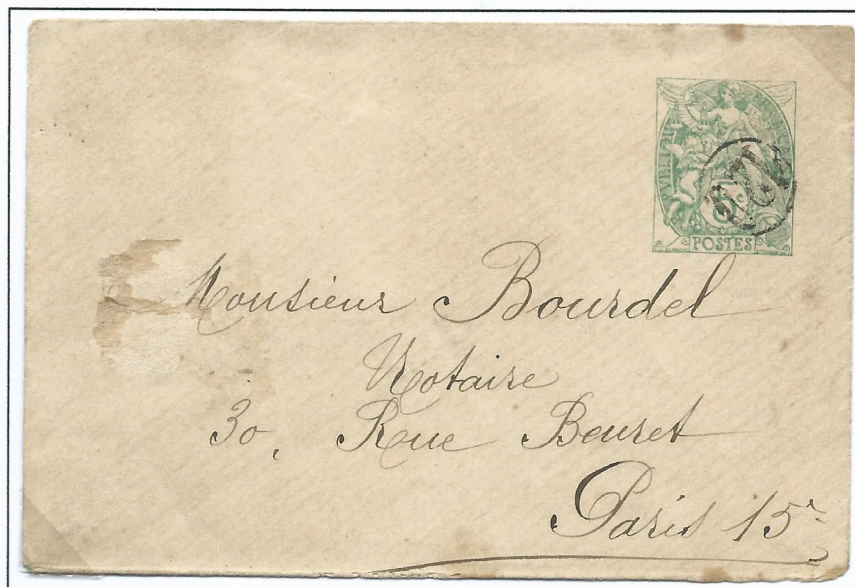 5 c
POSTES
Monsieur Bourdel
Notaire
30, Rue Beuret
Paris 15e